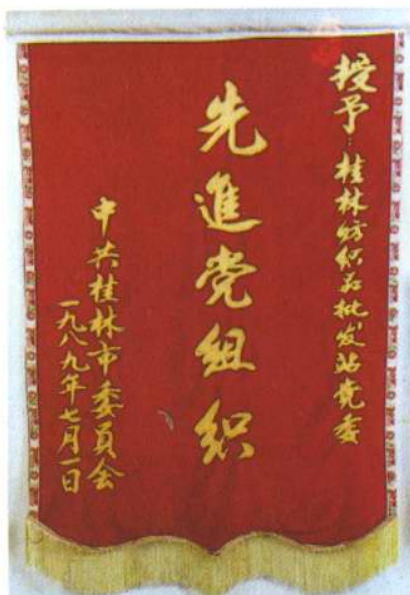 授予:桂林纺织品批发站党委
先進党组织
中共桂林市委員会
一九八九年七月一日